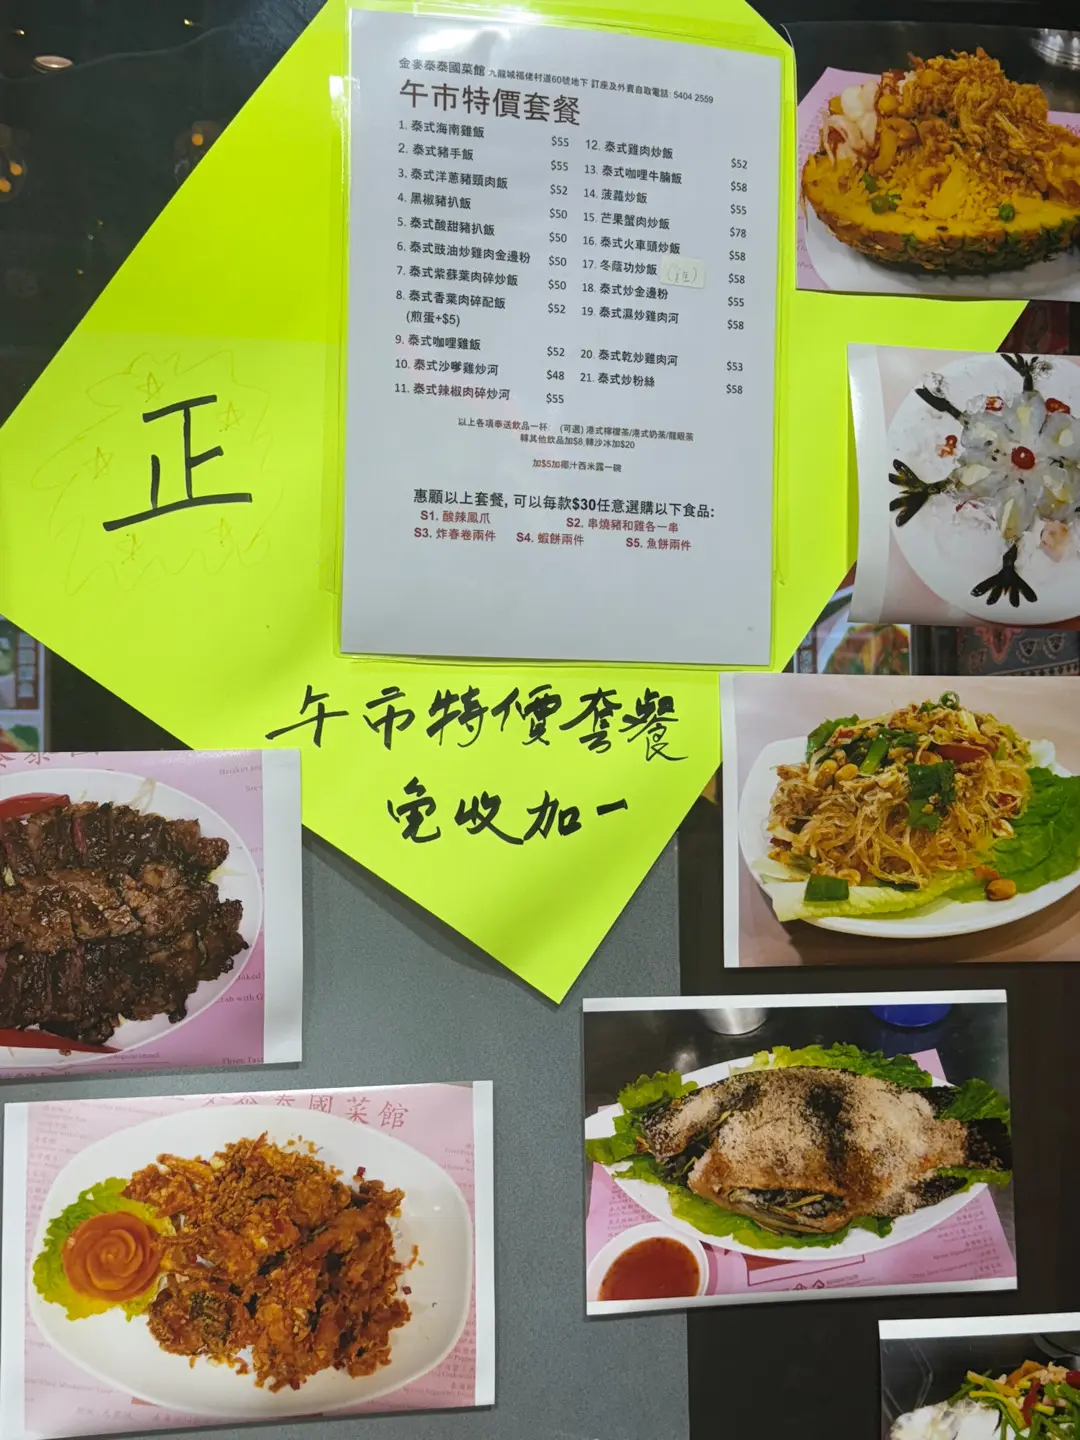 金麥泰泰國菜館 九龍城福佬村道60號地下 訂座及外賣自取電話: 5404 2559
午市特價套餐
1. 泰式海南雞飯 $55
2. 泰式豬手飯 $55
3. 泰式洋蔥豬頸肉飯 $52
4. 黑椒豬扒飯 $50
5. 泰式酸甜豬扒飯 $50
6. 泰式豉油炒雞肉金邊粉 $50
7. 泰式紫蘇葉肉碎炒飯 $50
8. 泰式香葉肉碎配飯 $52
(煎蛋+$5)
9. 泰式咖喱雞飯 $52
10. 泰式沙嗲雞炒河 $48
11. 泰式辣椒肉碎炒河 $55
12. 泰式雞肉炒飯 $52
13. 泰式咖喱牛腩飯 $58
14. 菠蘿炒飯 $55
15. 芒果蟹肉炒飯 $78
16. 泰式火車頭炒飯 $58
17. 冬蔭功炒飯 $58
18. 泰式炒金邊粉 $55
19. 泰式濕炒雞肉河 $58
20. 泰式乾炒雞肉河 $53
21. 泰式炒粉絲 $58
以上各項奉送飲品一杯: (可選) 港式檸檬茶/港式奶茶/龍眼茶
轉其他飲品加$8,轉沙冰加$20
加$5加椰汁西米露一碗
惠顧以上套餐, 可以每款$30任意選購以下食品:
S1. 酸辣鳳爪 S2. 串燒豬和雞各一串
S3. 炸春卷兩件 S4. 蝦餅兩件 S5. 魚餅兩件
正
午市特價套餐
免收加一
泰國菜館